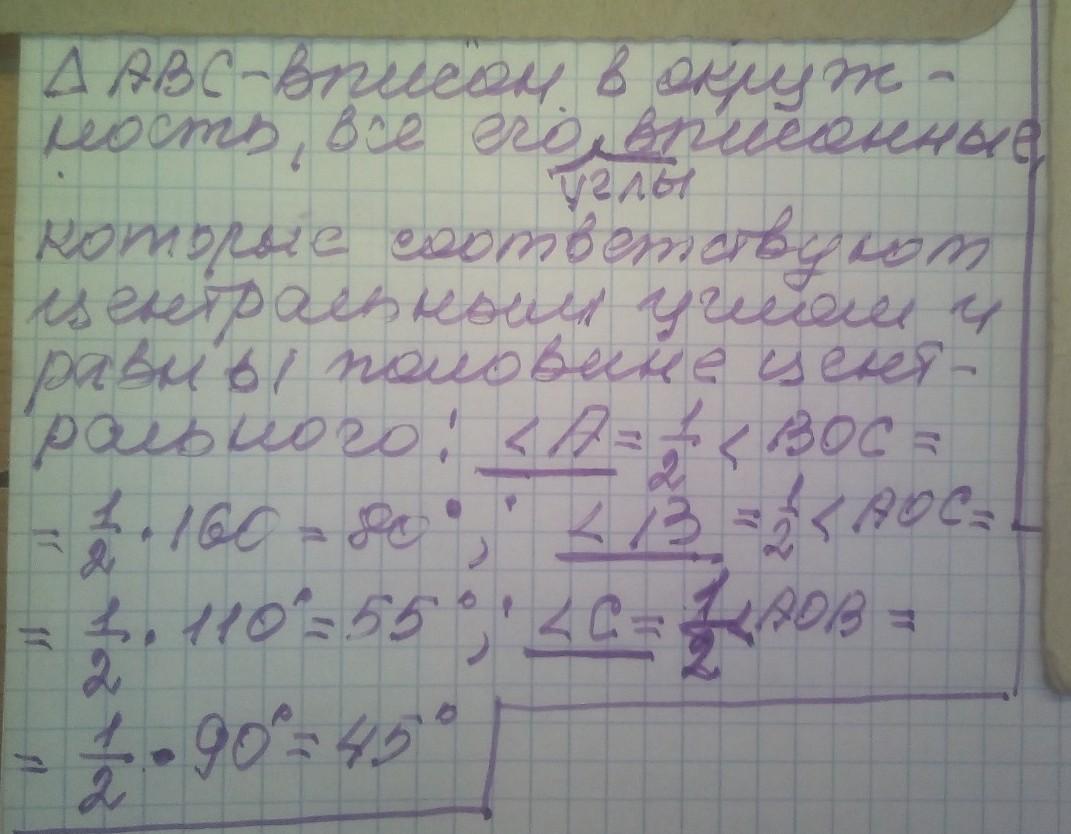 Δ ABC - вписан в окруж -
ность, все его вписанные,
углы
которые соответствуют
центральным углам и
равны половине цент-
рального: < A = 1/2 < BOC =
= 1/2 · 160 = 80°; < B = 1/2 < AOC =
= 1/2 · 110° = 55°; < C = 1/2 < AOB =
= 1/2 · 90° = 45°